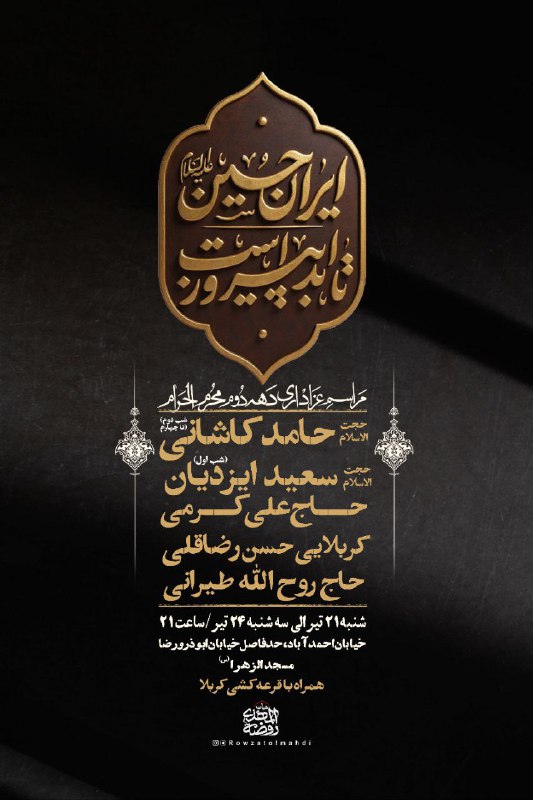 ایران حسین علیه السلام
تا ابد پیروز است
مراسم عزاداری دهه دوم محرم الحرام
حجت الاسلام حامد کاشانی (شب دوم تا چهارم)
حجت الاسلام سعید ایزدیان (شب اول)
حاج علی کرمی
کربلایی حسن رضاقلی
حاج روح الله طیرانی
شنبه ۲۱ تیر الی سه شنبه ۲۴ تیر / ساعت ۲۱
خیابان احمدآباد، حدفاصل خیابان ابوذر و رضا
مسجد الزهرا (س)
همراه با قرعه کشی کربلا
روضة المهدی
Rowzatolmahdi